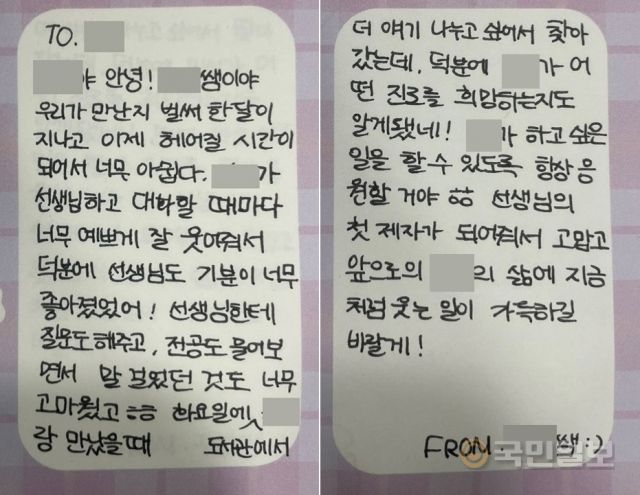 TO.
야 안녕! 쌤이야
우리가 만난지 벌써 한달이
지나고 이제 헤어질 시간이
되어서 너무 아쉽다. 가
선생님하고 대화할 때마다
너무 예쁘게 잘 웃어줘서
덕분에 선생님도 기분이 너무
좋아졌었어! 선생님한테
질문도 해주고, 전공도 물어보
면서 말 걸었던 것도 너무
고마웠고 ㅎㅎ 화요일에
랑 만났을때 도서관에서
더 얘기 나누고 싶어서 찾아
갔는데, 덕분에 가 어
떤 진로를 희망하는지도
알게됐네! 가 하고 싶은
일을 할 수 있도록 항상 응
원할 거야 ㅎㅎ 선생님의
첫 제자가 되어줘서 고맙고
앞으로의 의 삶에 지금
처럼 웃는 일이 가득하길
바랄게!
FROM. 쌤:)
국민일보